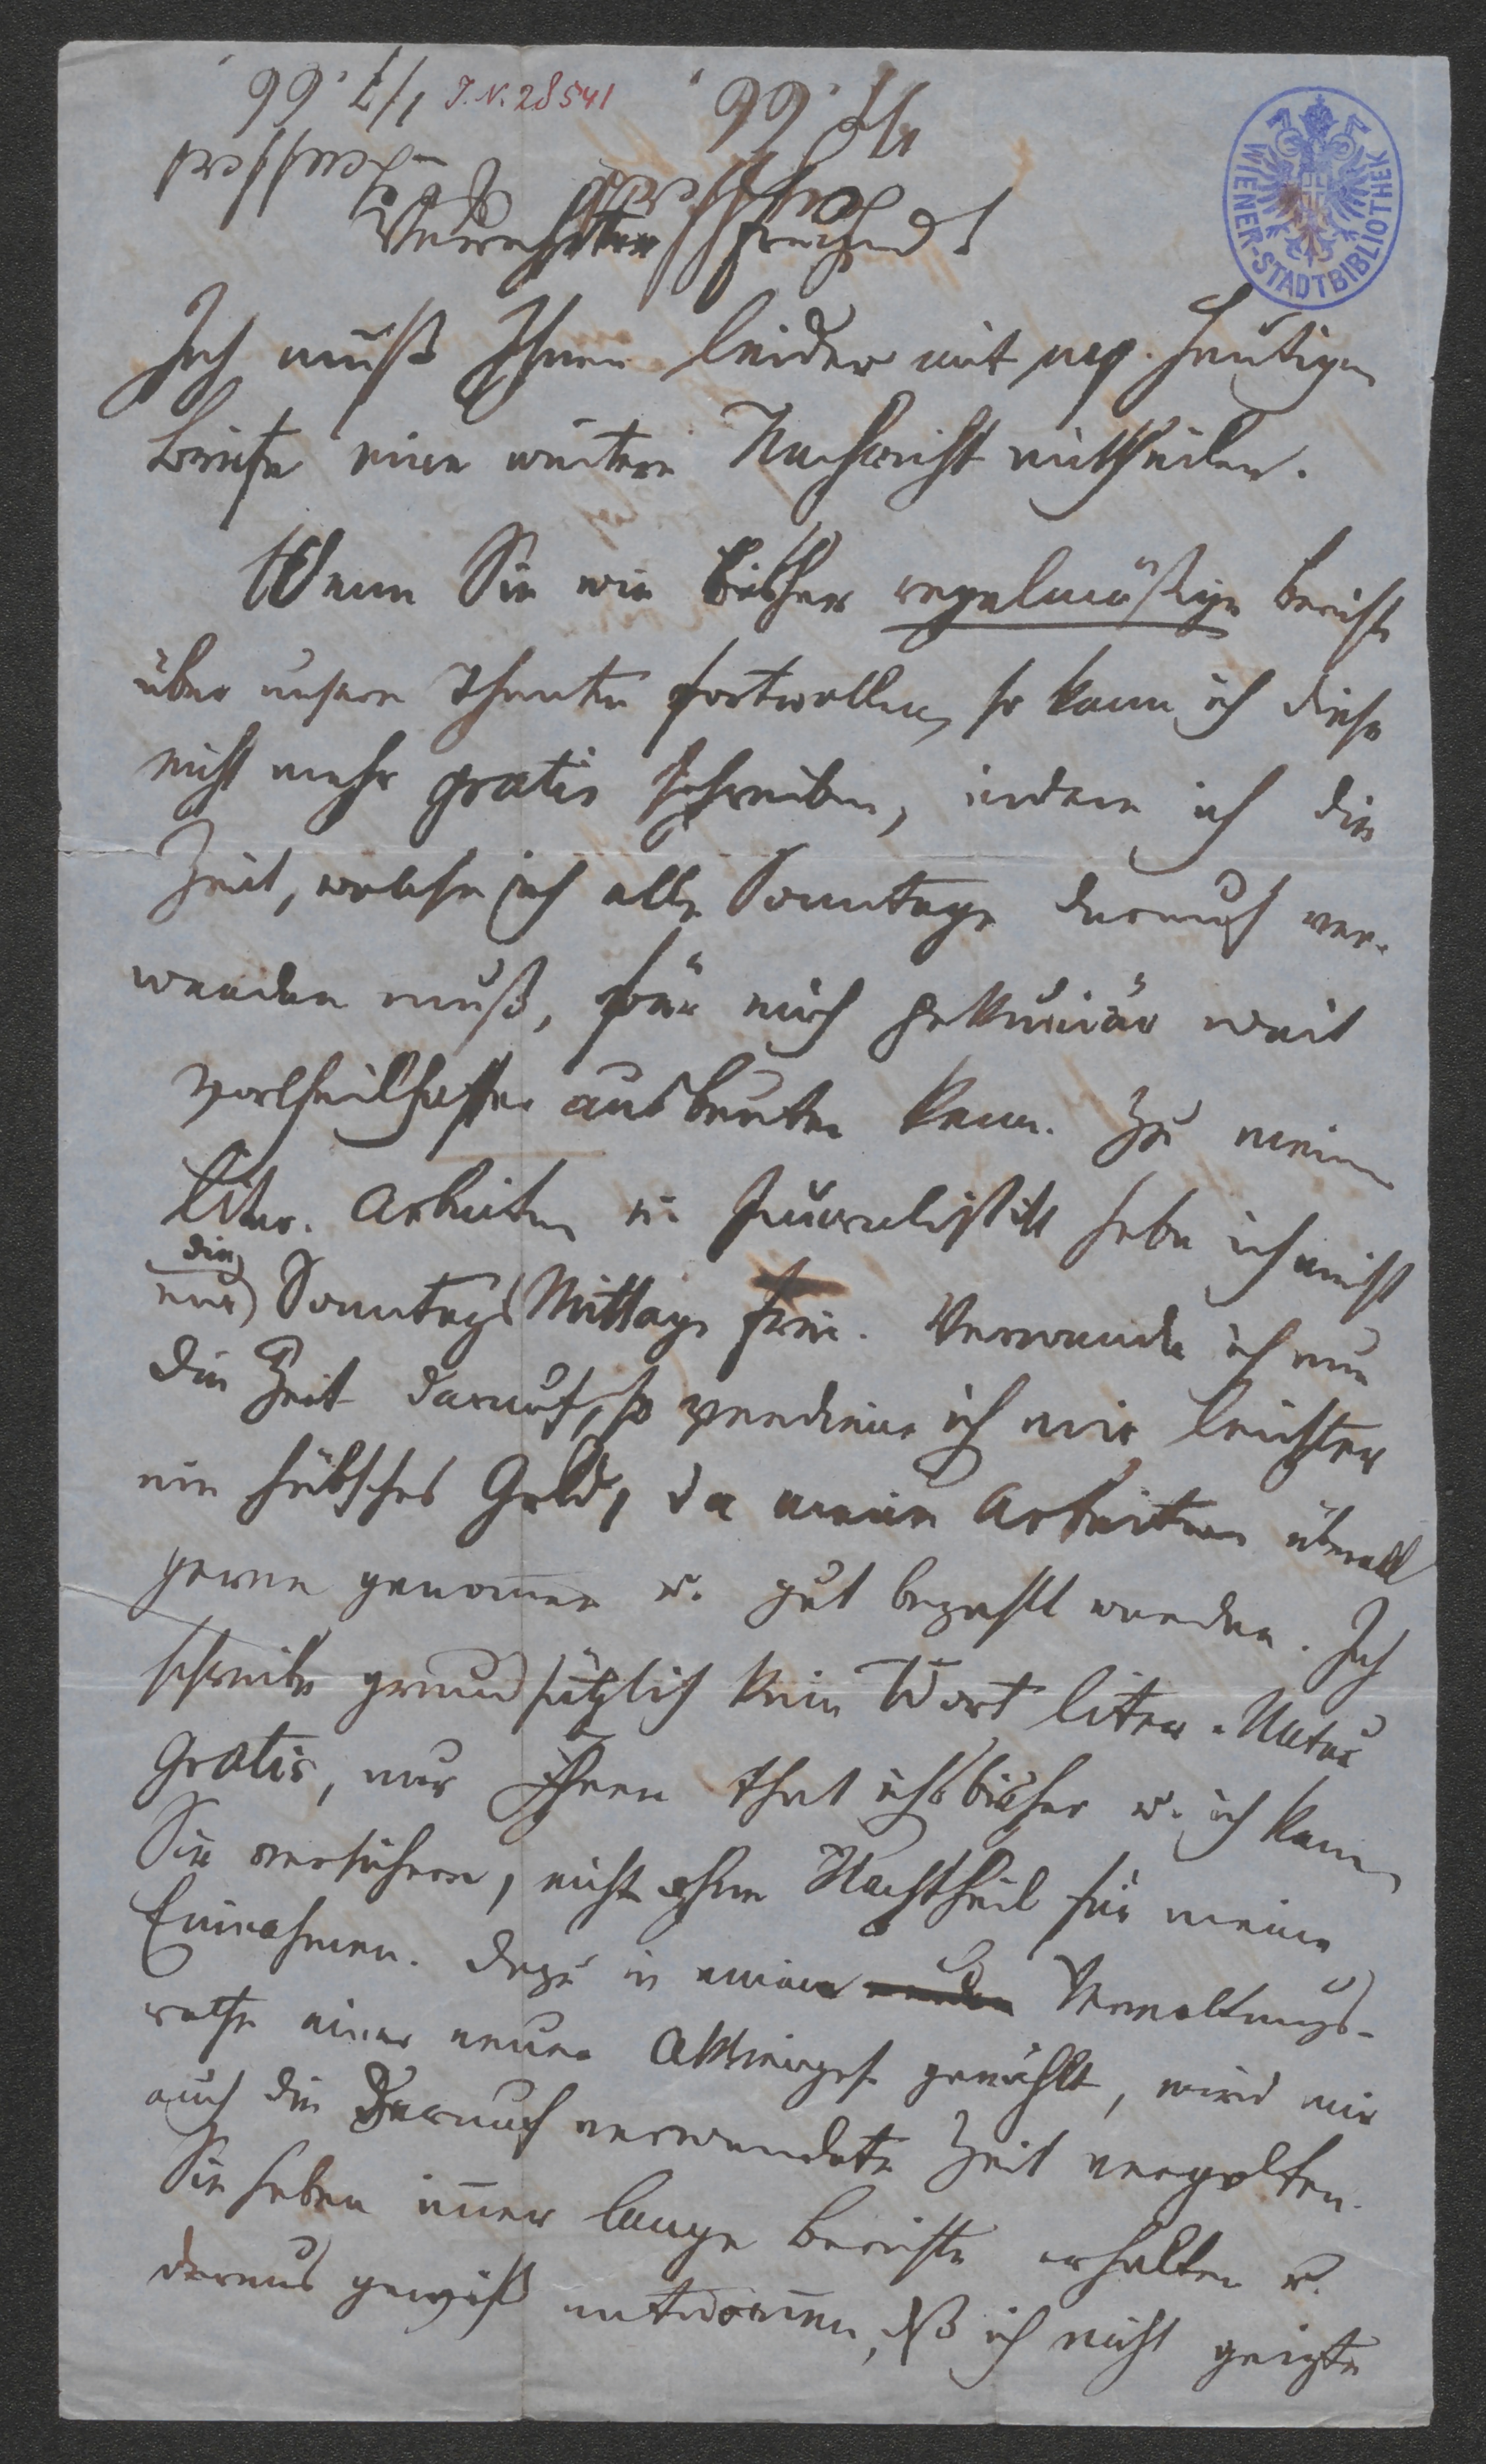 1/7. 66.
J. N. 28541
1/7. 66.
WIENER-STADTBIBLIOTHEK
Verehrter Freund!
Ich muß Ihnen leider mit m. heutigen
Briefe eine weitere Nachricht mittheilen.
Wenn Sie wie bisher regelmäßige Berichte
über unsere Theater fortwollen, so kann ich diese
nicht mehr gratis schreiben, indem ich die
Zeit, welche ich alle Sonntage darauf ver-
wenden muß, für mich pekuniär weit
vortheilhafter ausbeuten kann. Zu meinen
liter. Arbeiten u. Journalistik habe ich meist
die
nur Sonntags Mittags frei. Verwende ich nun
die Zeit darauf, so verdiene ich mir leichter
ein hübsches Geld, da meine Arbeiten überall
gerne genom̄en u. gut bezahlt werden. Ich
schreibe grundsätzlich kein Wort liter. Natur
gratis, nur Ihnen that ichs bisher u. ich kann
Sie versichern, nicht ohne Nachtheil für meine
Einnahmen. Dazu in einem Verwaltungs-
rathe einer neuen Aktienges. gewählt, wird mir
auch die darauf verwendete Zeit vergolten.
Sie haben im̄er lange Berichte erhalten u.
daraus gewiß entnom̄en, dß ich nicht geizte